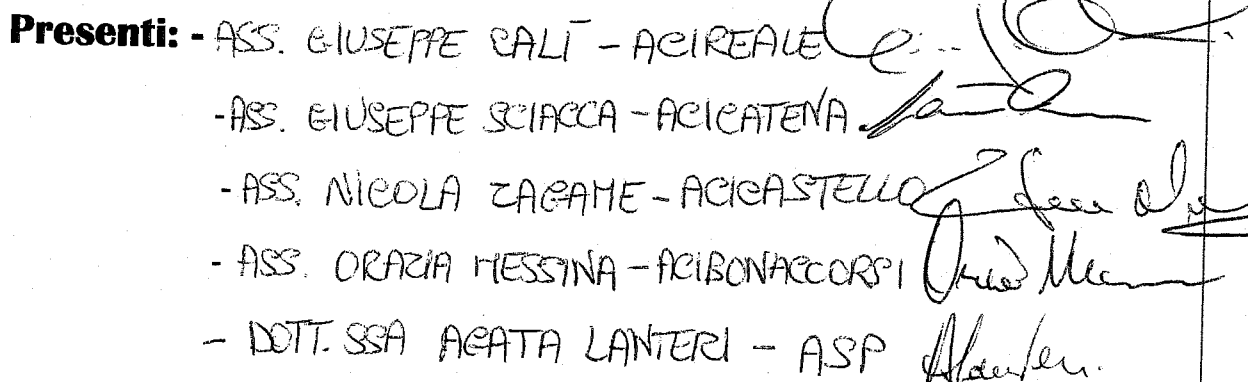 Presenti: - ASS. GIUSEPPE CALÌ - ACIREALE
- ASS. GIUSEPPE SCIACCA - ACICATENA
- ASS. NICOLA ZAGAME - ACICASTELLO
- ASS. ORAZIA MESSINA - ACIBONACCORSI
- DOTT.SSA AGATA LANTERI - ASP